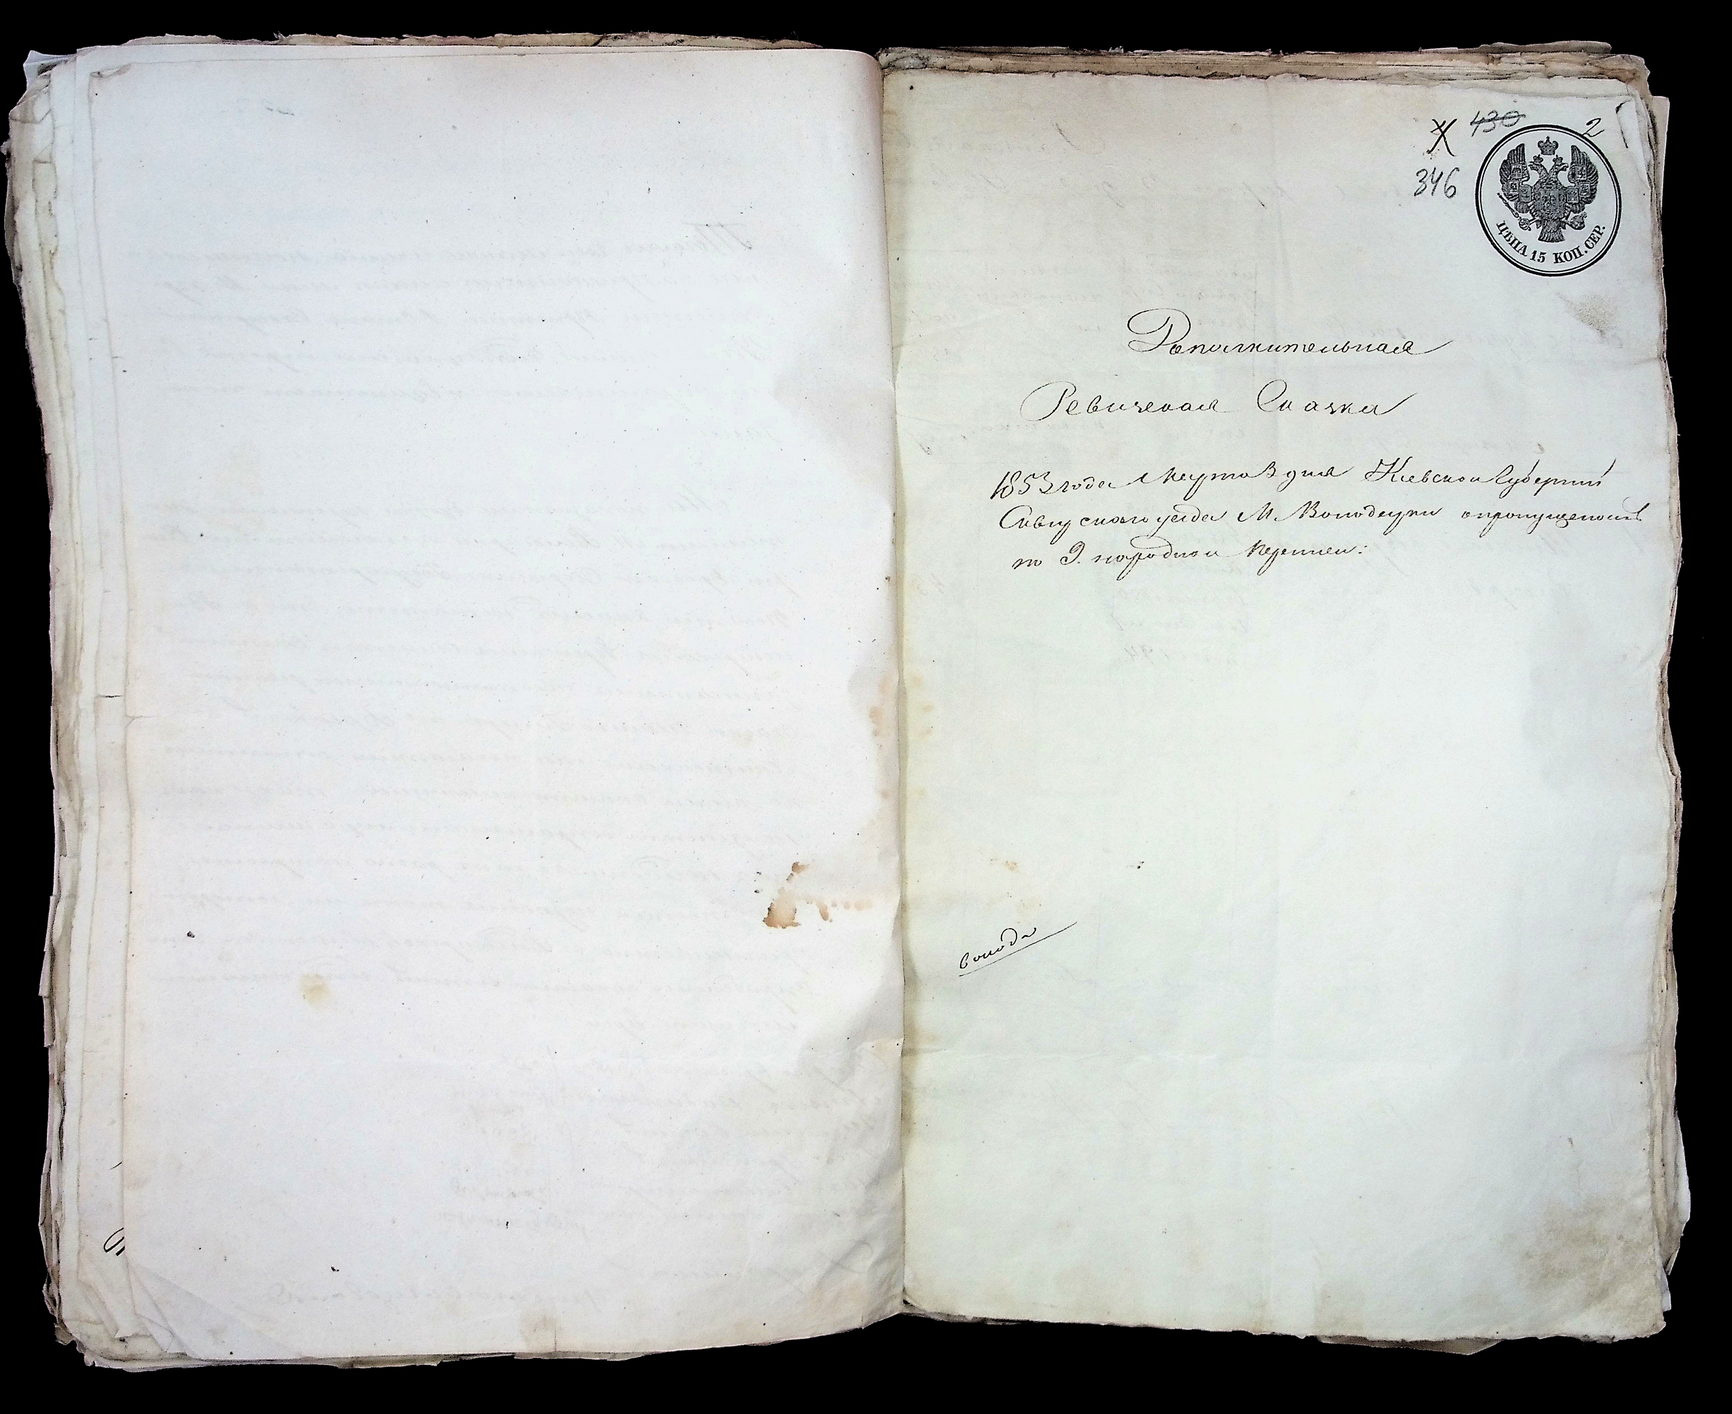 430 2
346
ЦѢНА 15 КОП. СЕР.
Дополнительная
Ревизская Сказка
1853 года Марта 3 дня Киевской Губернии
Сквирского уезда М. Володарки о пропущеных
по 9. народной переписи:
волода